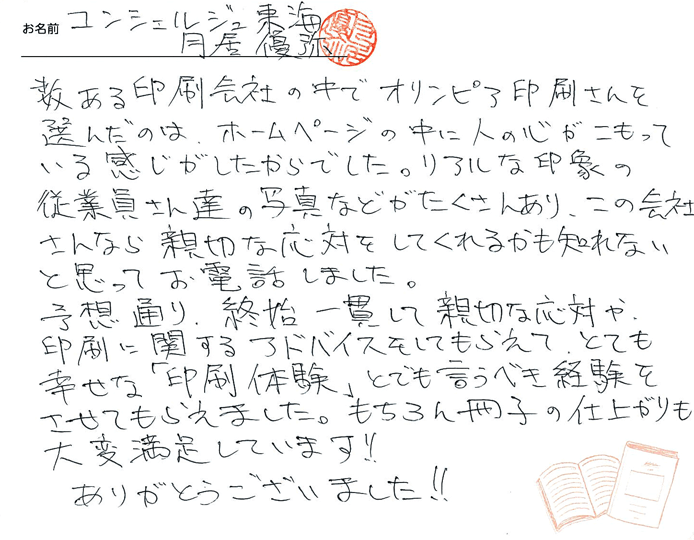 お名前 コンシェルジュ東海
月居 優弥
数ある印刷会社の中でオリンピア印刷さんを
選んだのは、ホームページの中に人の心がこもって
いる感じがしたからでした。リアルな印象の
従業員さん達の写真などがたくさんあり、この会社
さんなら親切な応対をしてくれるかも知れない
と思ってお電話しました。
予想通り、終始一貫して親切な応対や、
印刷に関するアドバイスをしてもらえて、とても
幸せな「印刷体験」とでも言うべき経験を
させてもらえました。もちろん冊子の仕上がりも
大変満足しています!!
ありがとうございました!!